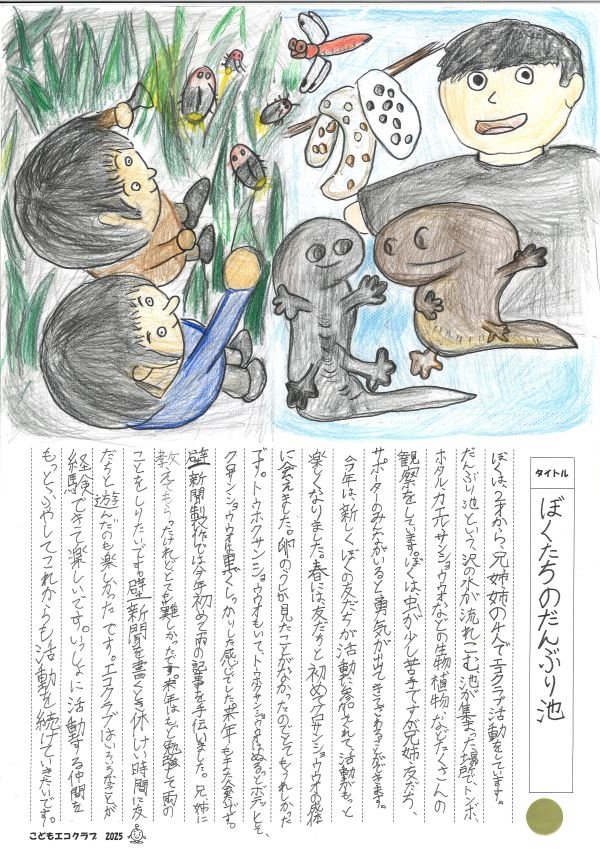 タイトル
ぼくたちのだんぶり池
ぼくは、2才から、兄姉姉の4人でエコクラブ活動をしています。
だんぶり池という、沢の水が流れこむ、池が集まった場所で、トンボ
ホタル、カエル、サンショウウオなどの生物、植物など、たくさんの
観察をしています。ぼくは、虫が少し苦手ですが、兄姉、友だち、
サポーターのみんながいると勇気が出てきてさわることができます。
今年は、新しくぼくの友だちが活動に参加してくれて、活動がもっと
楽しくなりました。春には友だちと初めてクロサンショウウオの成体
に会えました。卵のうしか見たことがなかったのでとてもうれしかった
です。トウホクサンショウウオもいて、トウホクサンショウウオはぬるっとボディで、
クロサンショウウオは黒くがっしりした感じでした。来年もまた会いたいです。
壁新聞制作では今年初めて雨の記事を手伝いました。兄姉に
教えてもらったけれどとても難しかったです。来年はもっと勉強して雨の
ことをしりたいです。壁新聞を書くとき休けい時間に友
だちと遊んだのも楽しかったです。エコクラブはいろいろなことが
経験できて楽しいです。いっしょに活動する仲間を
もっとふやしてこれからも活動を続けていきたいです。
こどもエコクラブ 2025